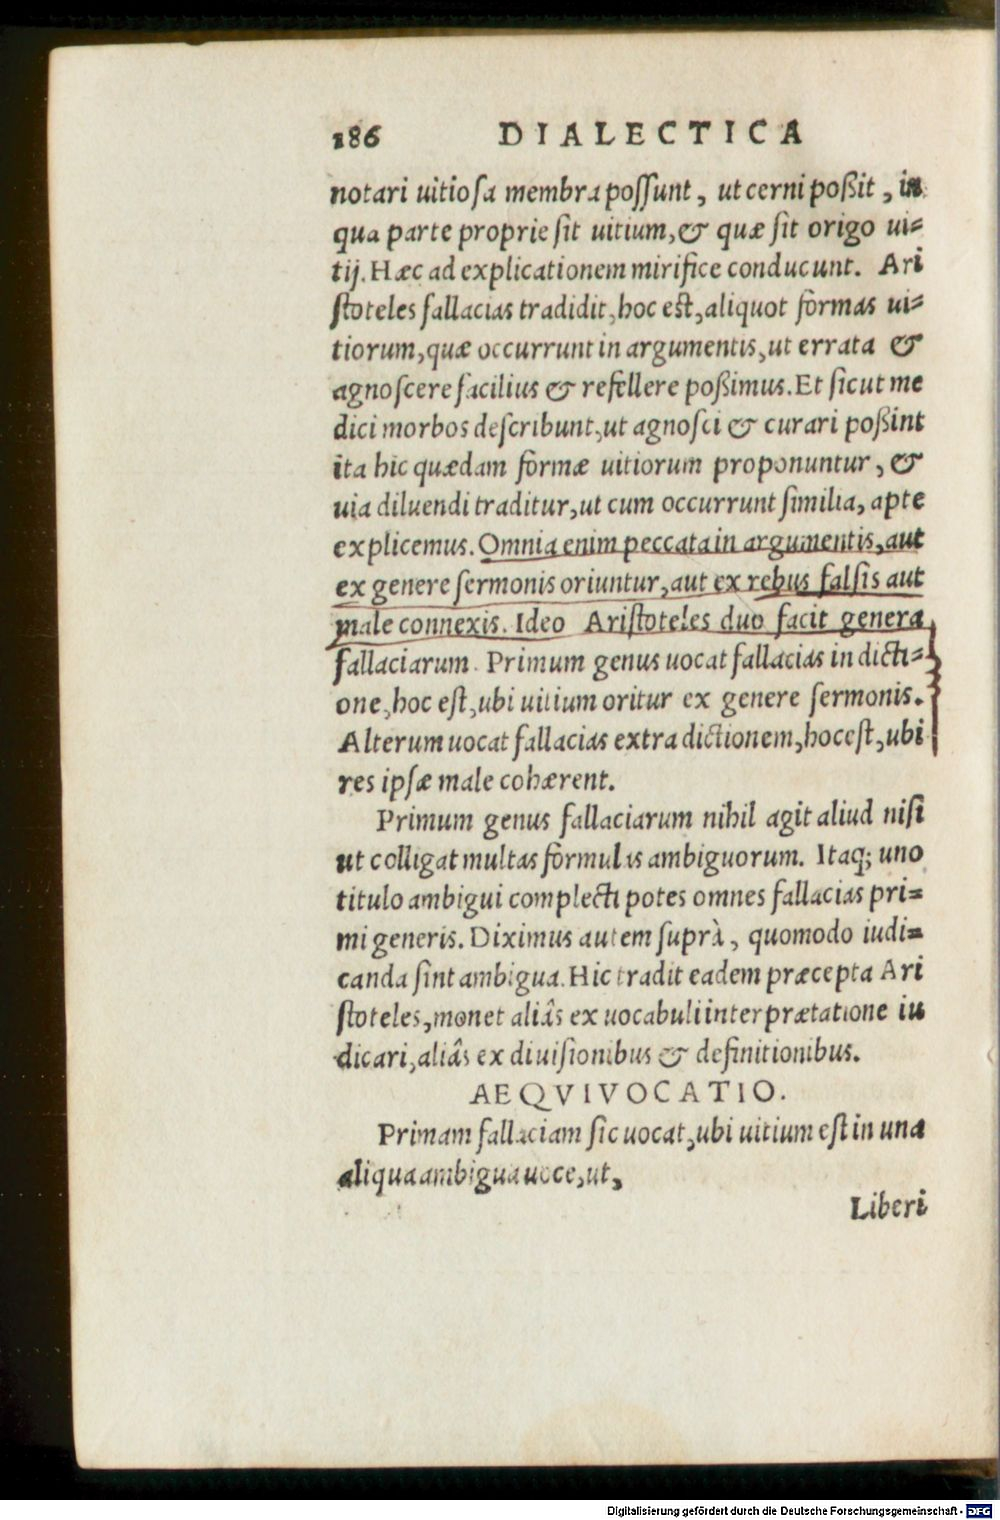 186 DIALECTICA
notari uitiosa membra possunt, ut cerni poßit, in
qua parte proprie sit uitium, & quæ sit origo ui=
tij. Hæc ad explicationem mirifice conducunt. Ari
stoteles fallacias tradidit, hoc est, aliquot formas ui=
tiorum, quæ occurrunt in argumentis, ut errata &
agnoscere facilius & refellere poßimus. Et sicut me
dici morbos describunt, ut agnosci & curari poßint
ita hic quædam formæ uitiorum proponuntur, &
uia diluendi traditur, ut cum occurrunt similia, apte
explicemus. Omnia enim peccata in argumentis, aut
ex genere sermonis oriuntur, aut ex rebus falsis aut
male connexis. Ideo Aristoteles duo facit genera
fallaciarum. Primum genus uocat fallacias in dicti=
one, hoc est, ubi uitium oritur ex genere sermonis.
Alterum uocat fallacias extra dictionem, hoc est, ubi
res ipsæ male cohærent.
Primum genus fallaciarum nihil agit aliud nisi
ut colligat multas formulas ambiguorum. Itaq; uno
titulo ambigui complecti potes omnes fallacias pri=
mi generis. Diximus autem suprà, quomodo iudi=
canda sint ambigua. Hic tradit eadem præcepta Ari
stoteles, monet aliâs ex uocabuli interprætatione iu
dicari, aliâs ex diuisionibus & definitionibus.
AEQVIVOCATIO.
Primam fallaciam sic uocat, ubi uitium est in una
aliqua ambigua uoce, ut,
Liberi
Digitalisierung gefördert durch die Deutsche Forschungsgemeinschaft - DFG